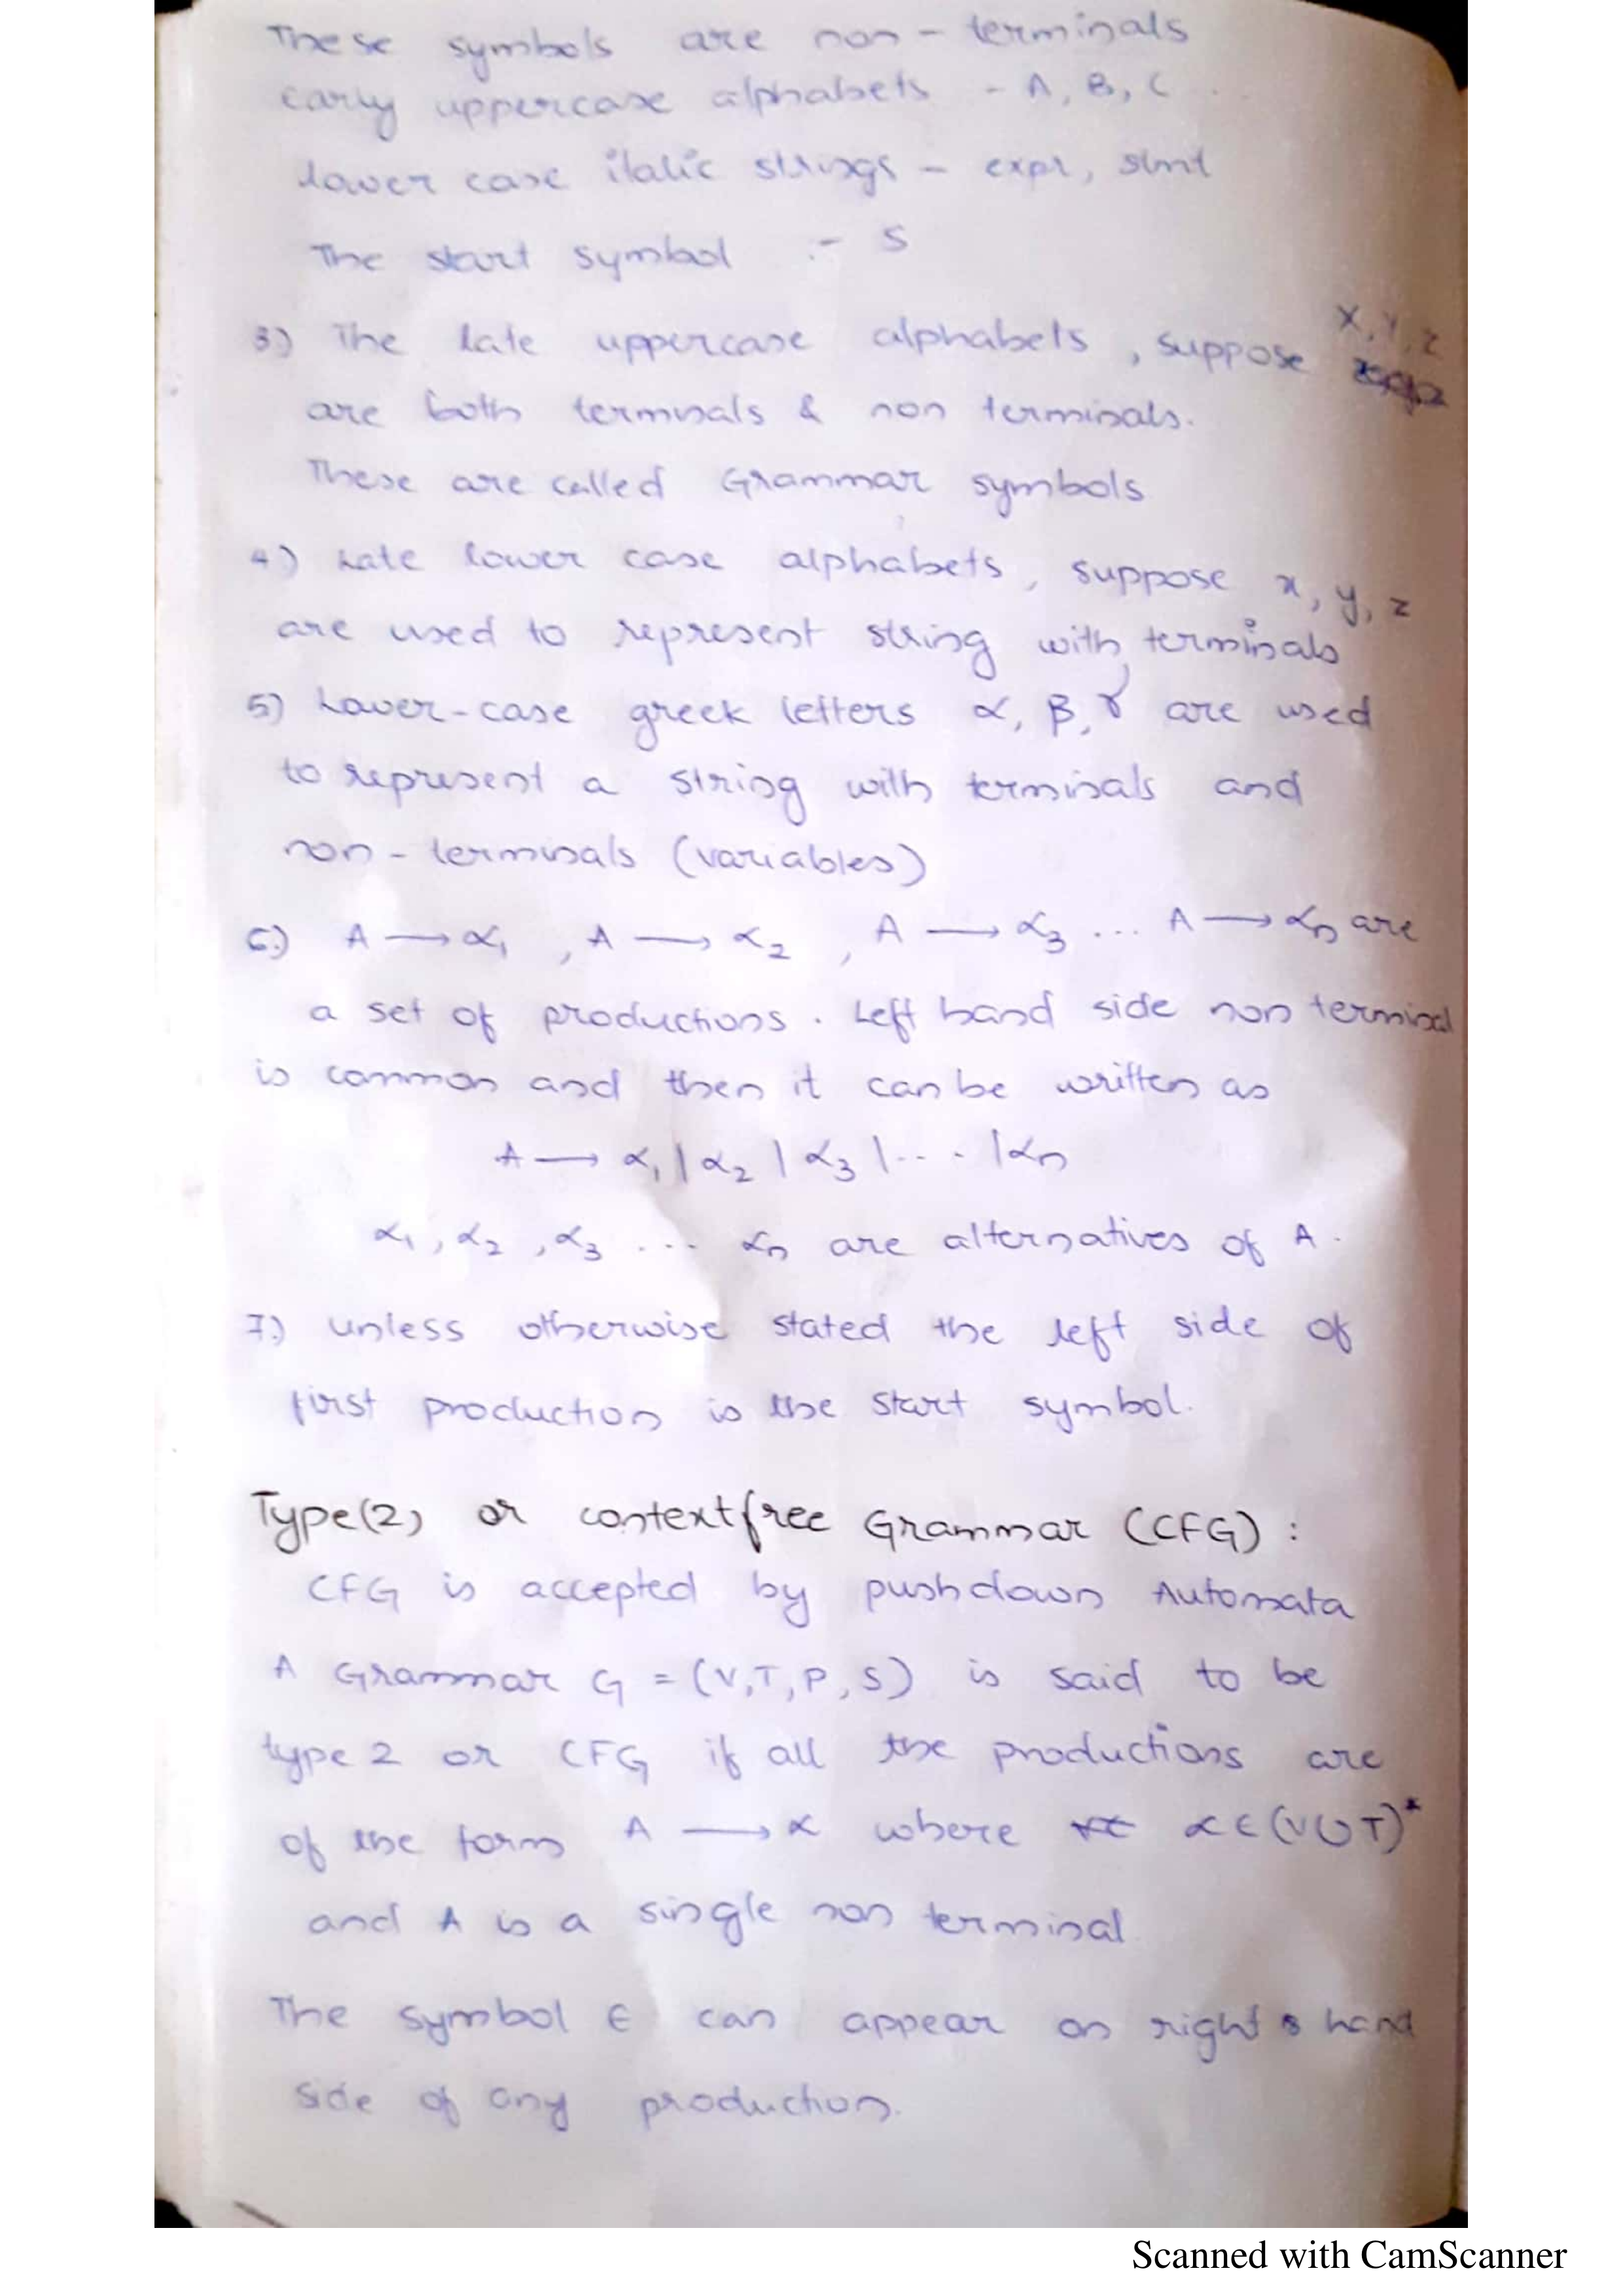 These symbols are non-terminals
early uppercase alphabets - A, B, C ...
lower case italic strings - expr, stmt
The start symbol :- S
3) The late uppercase alphabets, suppose X, Y, Z
are both terminals & non terminals.
These are called Grammar symbols
4) Late lower case alphabets, suppose x, y, z
are used to represent string with terminals
5) Lower-case greek letters α, β, γ are used
to represent a string with terminals and
non-terminals (variables)
6) A → α₁, A → α₂, A → α₃ ... A → αₙ are
a set of productions. Left hand side non terminal
is common and then it can be written as
A → α₁ | α₂ | α₃ | ... | αₙ
α₁, α₂, α₃ ... αₙ are alternatives of A.
7) unless otherwise stated the left side of
first production is the start symbol.
Type(2) or contextfree Grammar (CFG) :
CFG is accepted by pushdown Automata
A Grammar G = (V, T, P, S) is said to be
type 2 or CFG if all the productions are
of the form A → α where α ∈ (V ∪ T)*
and A is a single non terminal
The symbol ∈ can appear on right hand
side of any production.
Scanned with CamScanner